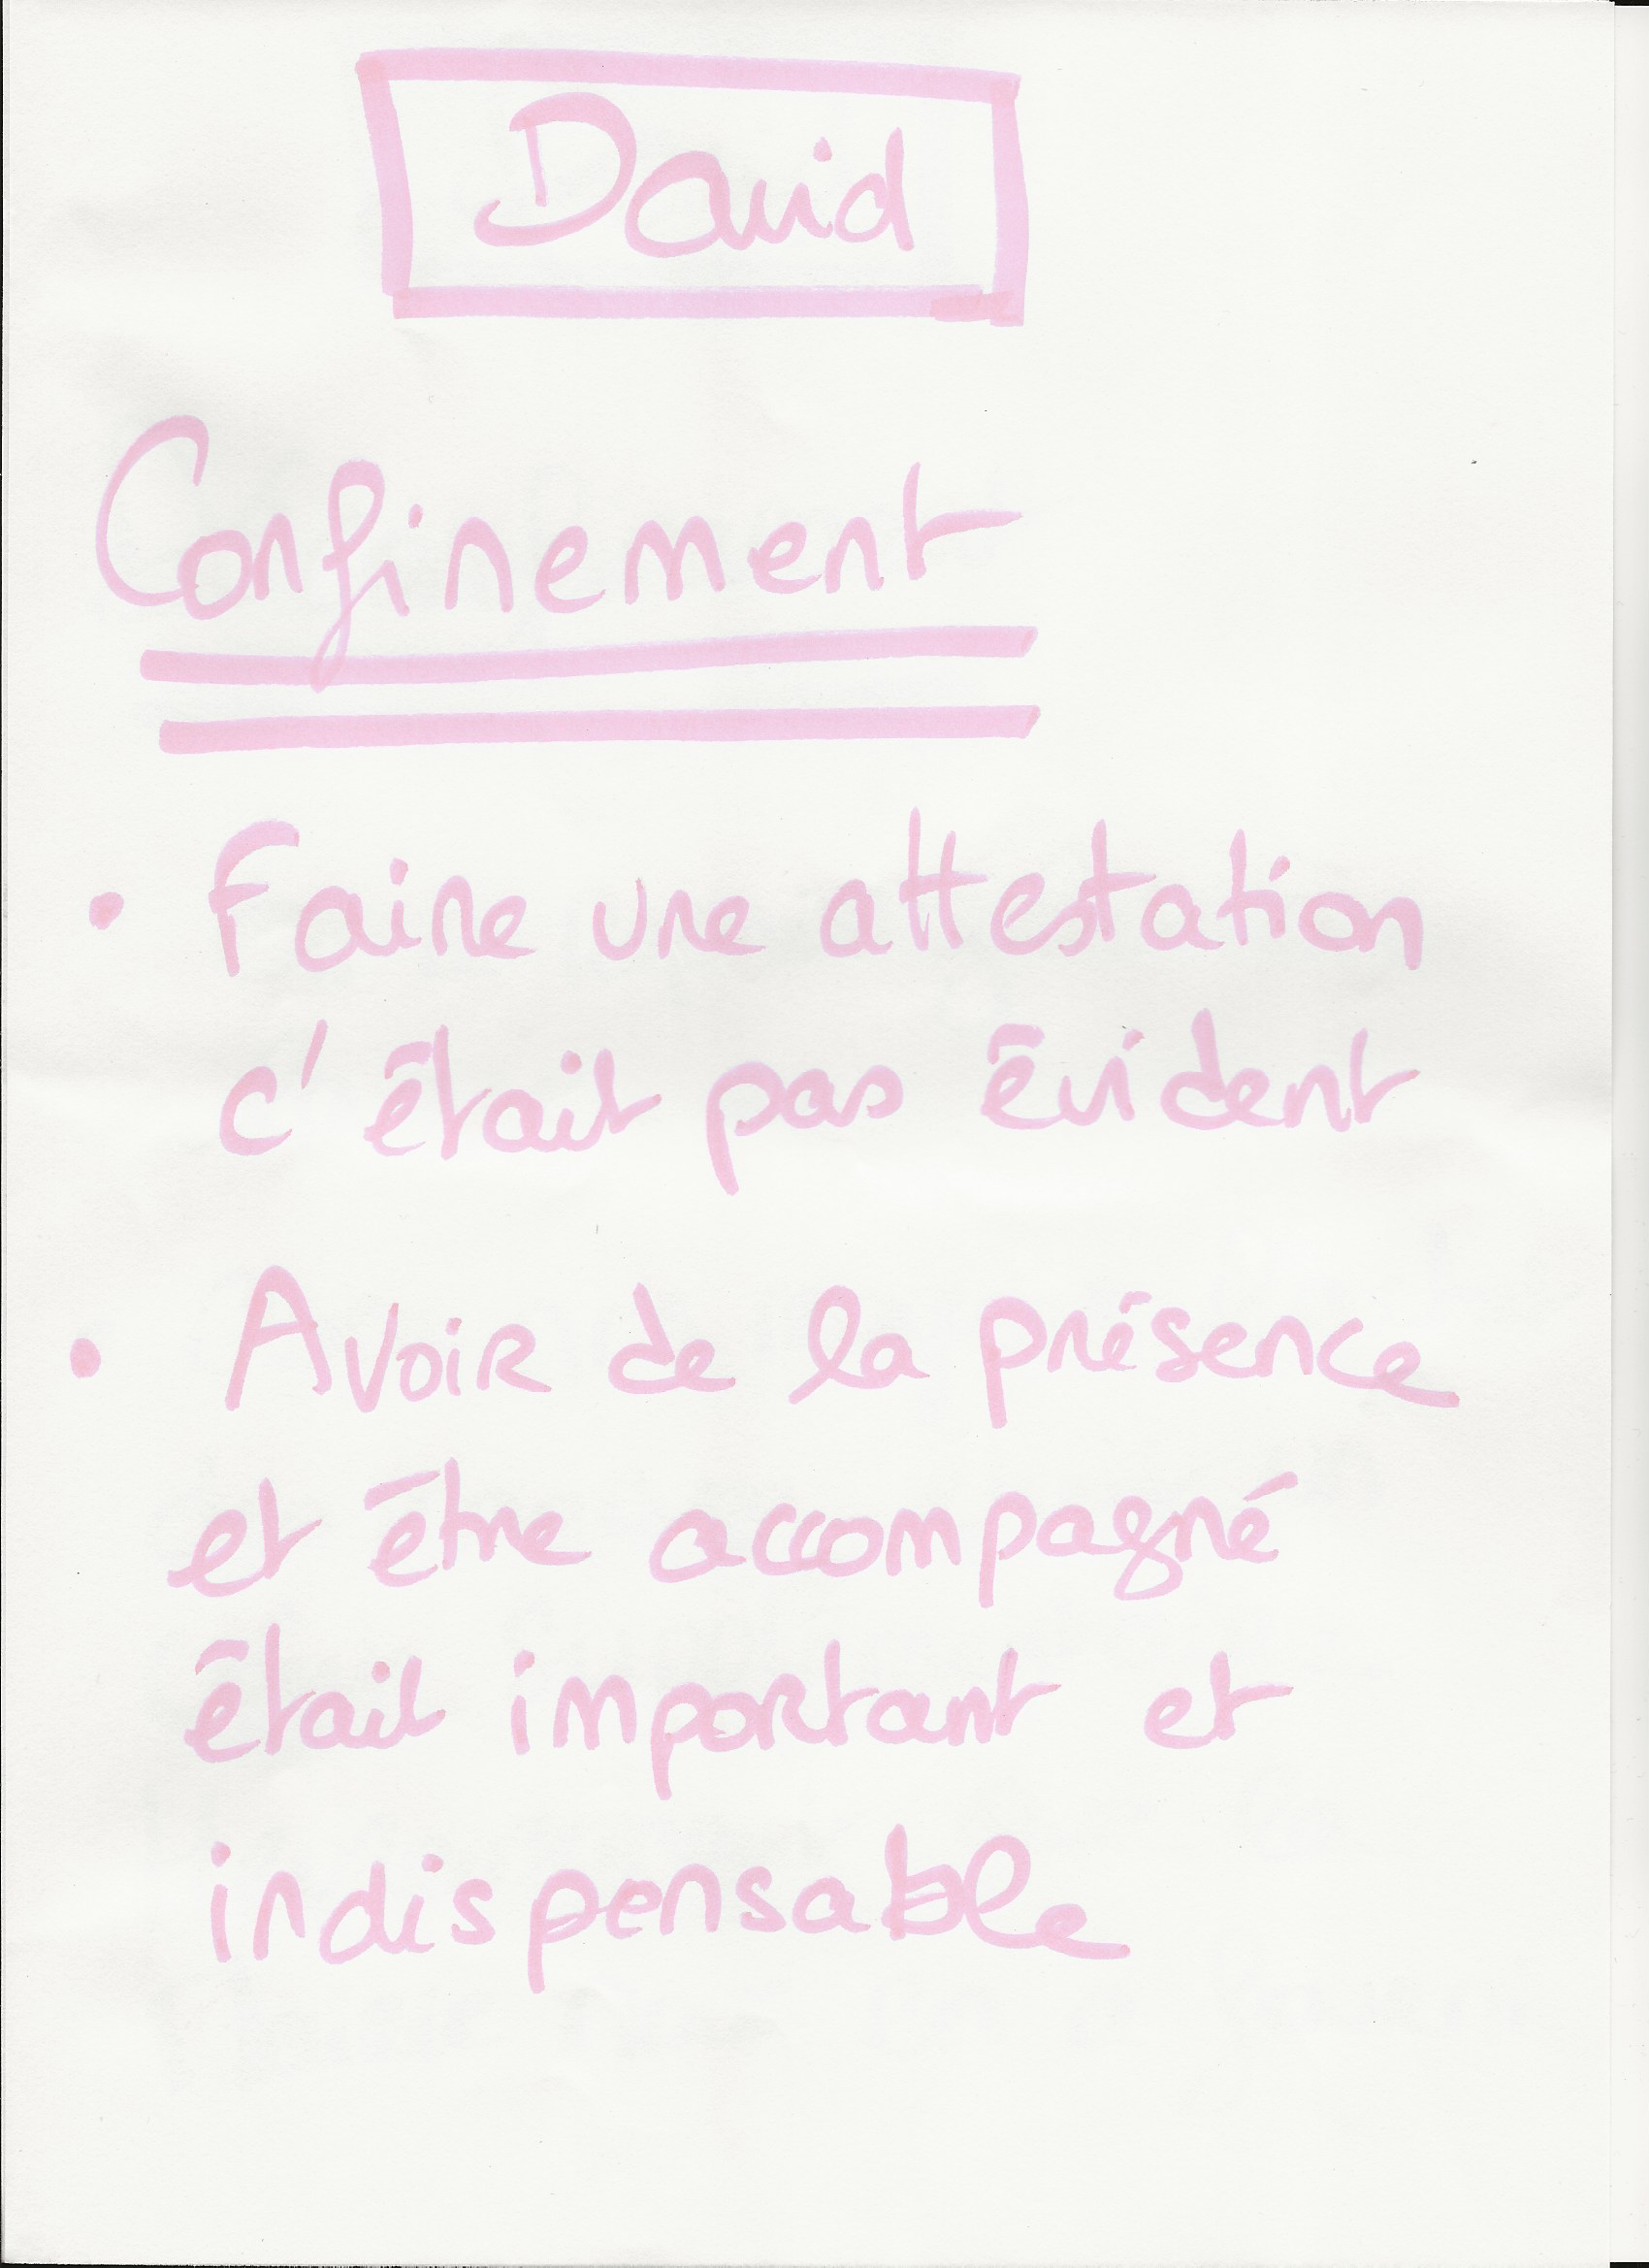 David
Confinement
• Faire une attestation
c'était pas évident
• Avoir de la présence
et être accompagné
était important et
indispensable